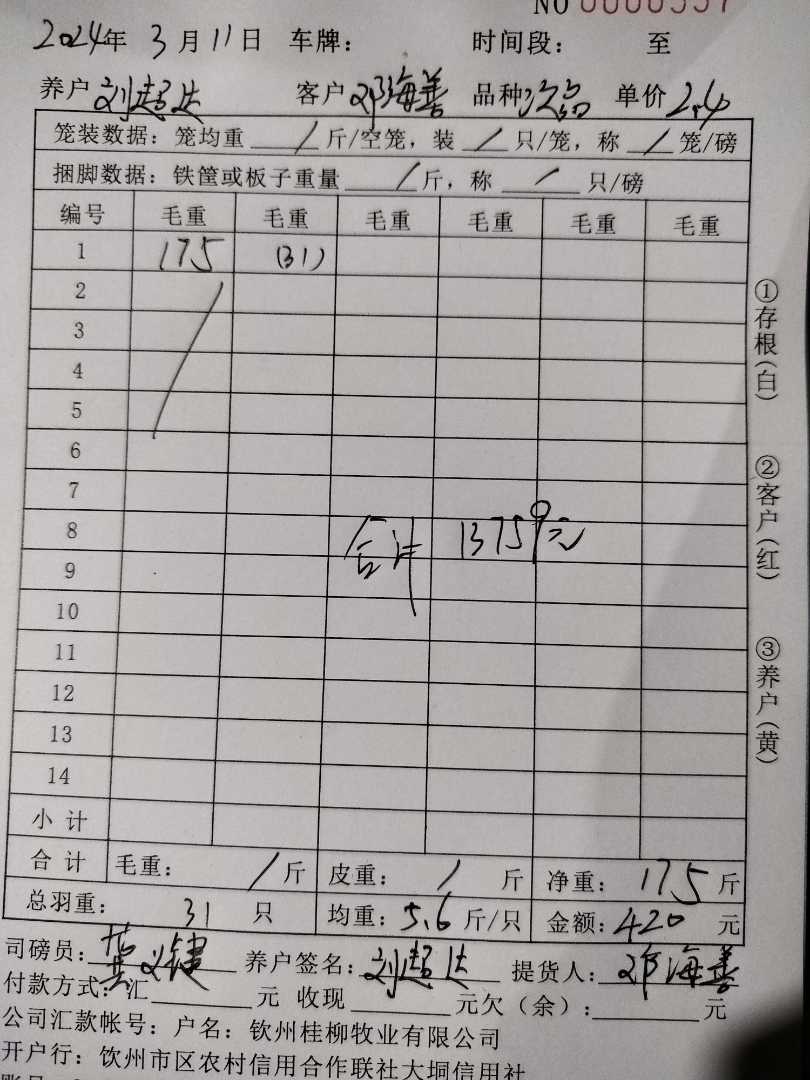 NO 0000557
2024年 3月11日 车牌： 时间段： 至
养户 刘超达 客户 邓海善 品种 次品 单价 2.4
笼装数据：笼均重 / 斤/空笼，装 / 只/笼，称 / 笼/磅
捆脚数据：铁筐或板子重量 / 斤，称 / 只/磅
编号 毛重 毛重 毛重 毛重 毛重 毛重
1 175 (31)
2
3
4
5
6
7
8
合计 13759元
9
10
11
12
13
14
小计
合计 毛重： / 斤 皮重： / 斤 净重： 175 斤
总羽重： 31 只 均重： 5.6 斤/只 金额： 420 元
司磅员： 养户签名： 刘超达 提货人： 邓海善
付款方式：汇 元 收现 元欠（余）： 元
公司汇款帐号：户名：钦州桂柳牧业有限公司
开户行：钦州市区农村信用合作联社大垌信用社
①存根(白)
②客户(红)
③养户(黄)